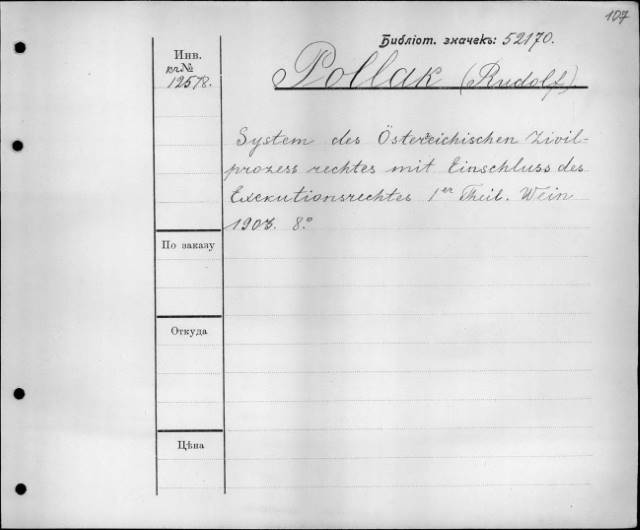 107
Библіот. значекъ: 52170.
Инв.
кч№
12578.
Pollak (Rudolf)
System des Österreichischen Zivil-
prozess rechtes mit Einschluss des
Exekutionsrechtes 1er Theil. Wein
1903. 8.°
По заказу
Откуда
Цѣна